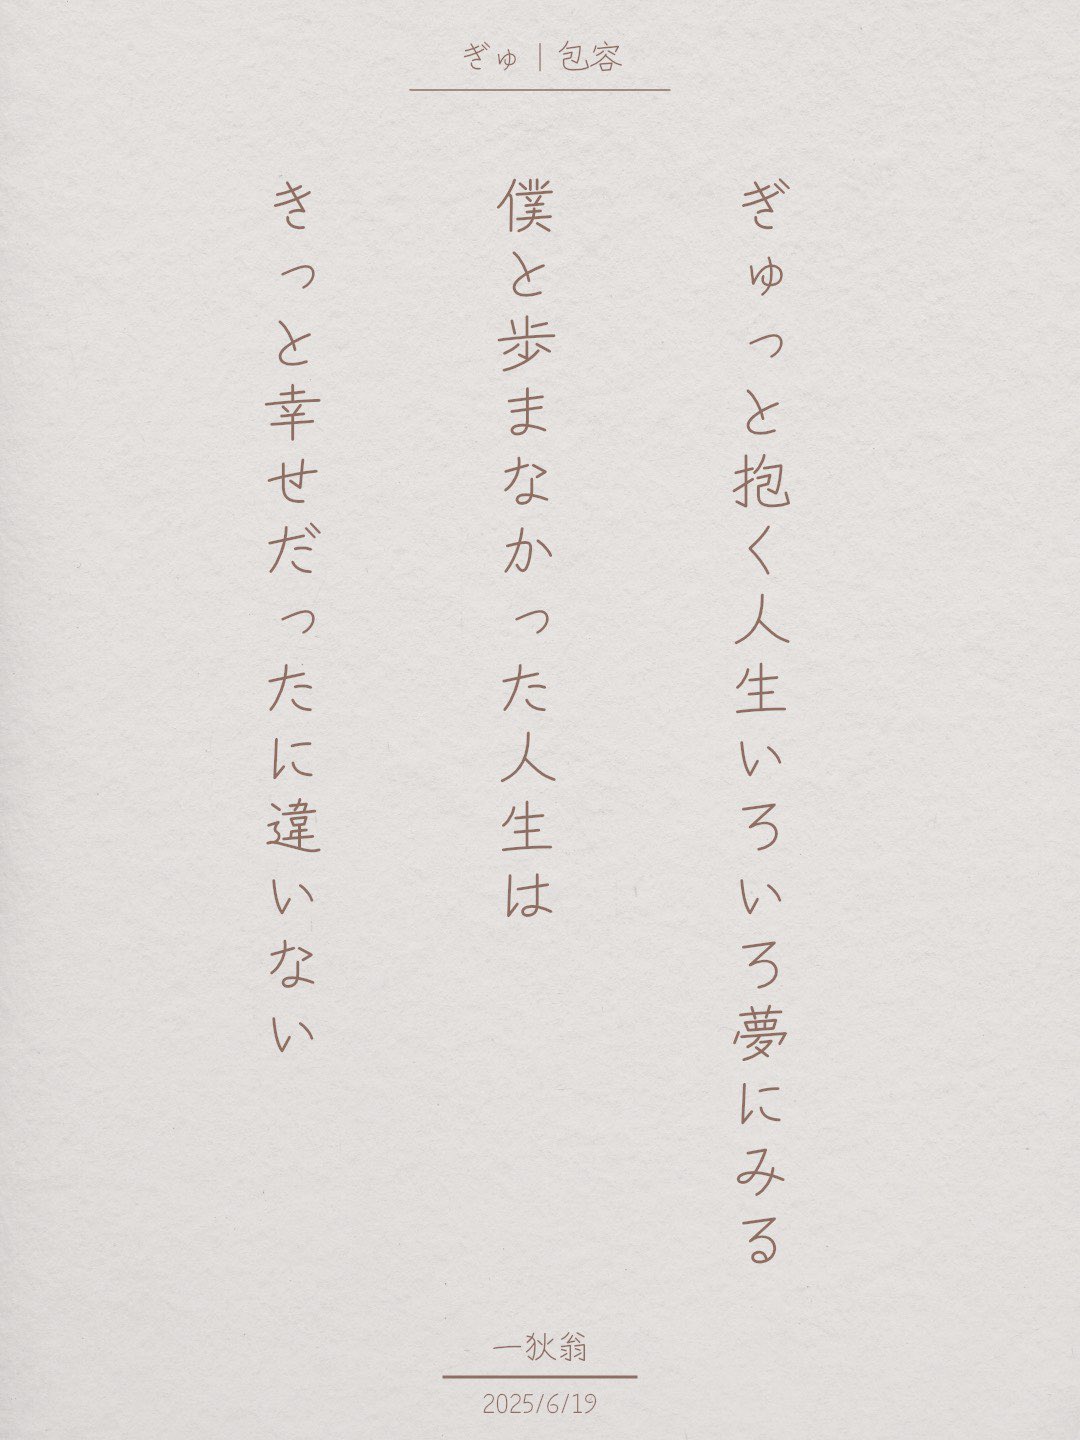 ぎゅ｜包容
ぎゅっと抱く人生いろいろ夢にみる
僕と歩まなかった人生は
きっと幸せだったに違いない
一狄翁
2025/6/19